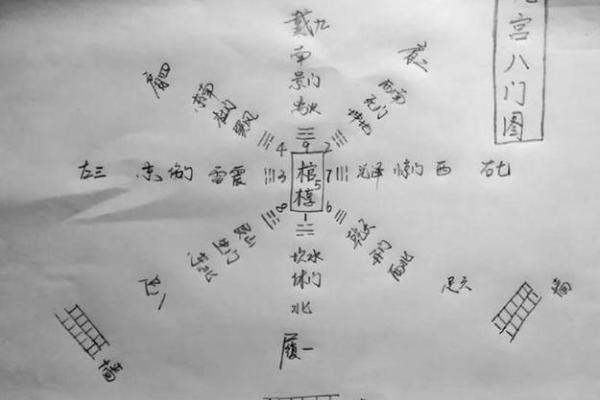 宫八门图
戴九
南
景门
离火
肩二
西南
死门
坤地
肩四
东南
杜门
巽风
4 9 2
左三 东 伤门 雷震 3
棺椁
5
7 兑泽 惊门 西 右七
8 1 6
艮山
生门
东北
坎水
休门
北
履一
乾天
开门
西北
足六
墙